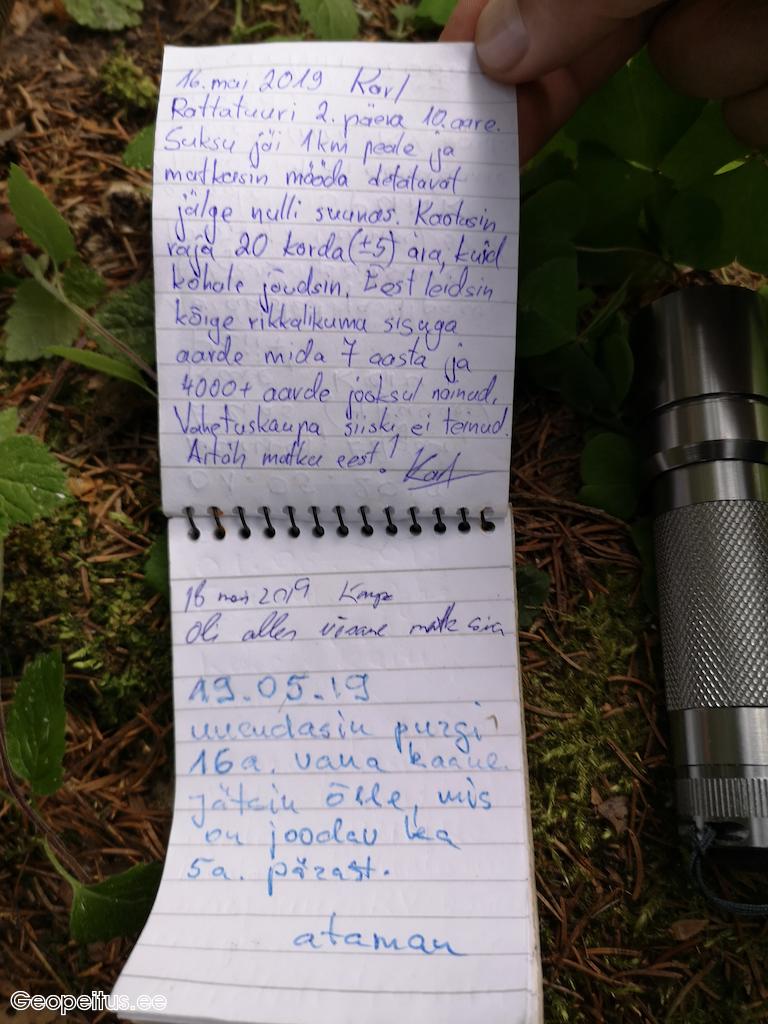 16. mai 2019 Karl
Rattatuuri 2. päeva 10. aare.
Suksu jäi 1km peale ja
matkasin mööda detatavat
jälge nulli suunas. Kaotasin
raja 20 korda (±5) ära, kuid
kohale jõudsin. Eest leidsin
kõige rikkalikuma sisuga
aarde mida 7 aasta ja
4000+ aarde jooksul näinud.
Vahetuskaupa siiski ei teinud.
Aitäh matka eest! Karl
mai 2019
Oli alles vürane matk siia
19.05.19
uuendasin purgi
16a. vana kaane.
Jätsin õlle, mis
on joodav ka
5a. pärast.
ataman
Geopeitus.ee